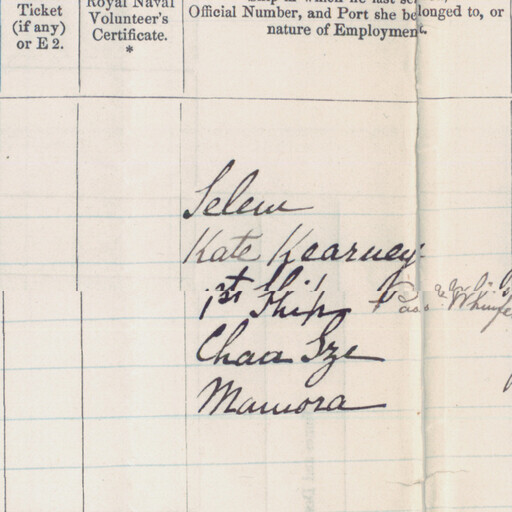 Ticket
(if any)
or E 2.
Royal Naval
Volunteer's
Certificate.
*
Official Number, and Port she belonged to, or
nature of Employment.
Selew
Kate Kearney
1st Ship
Chaa Sze
Mamora